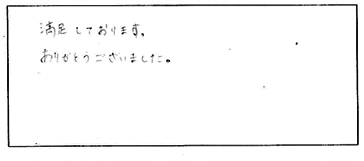 満足しております。
ありがとうございました。